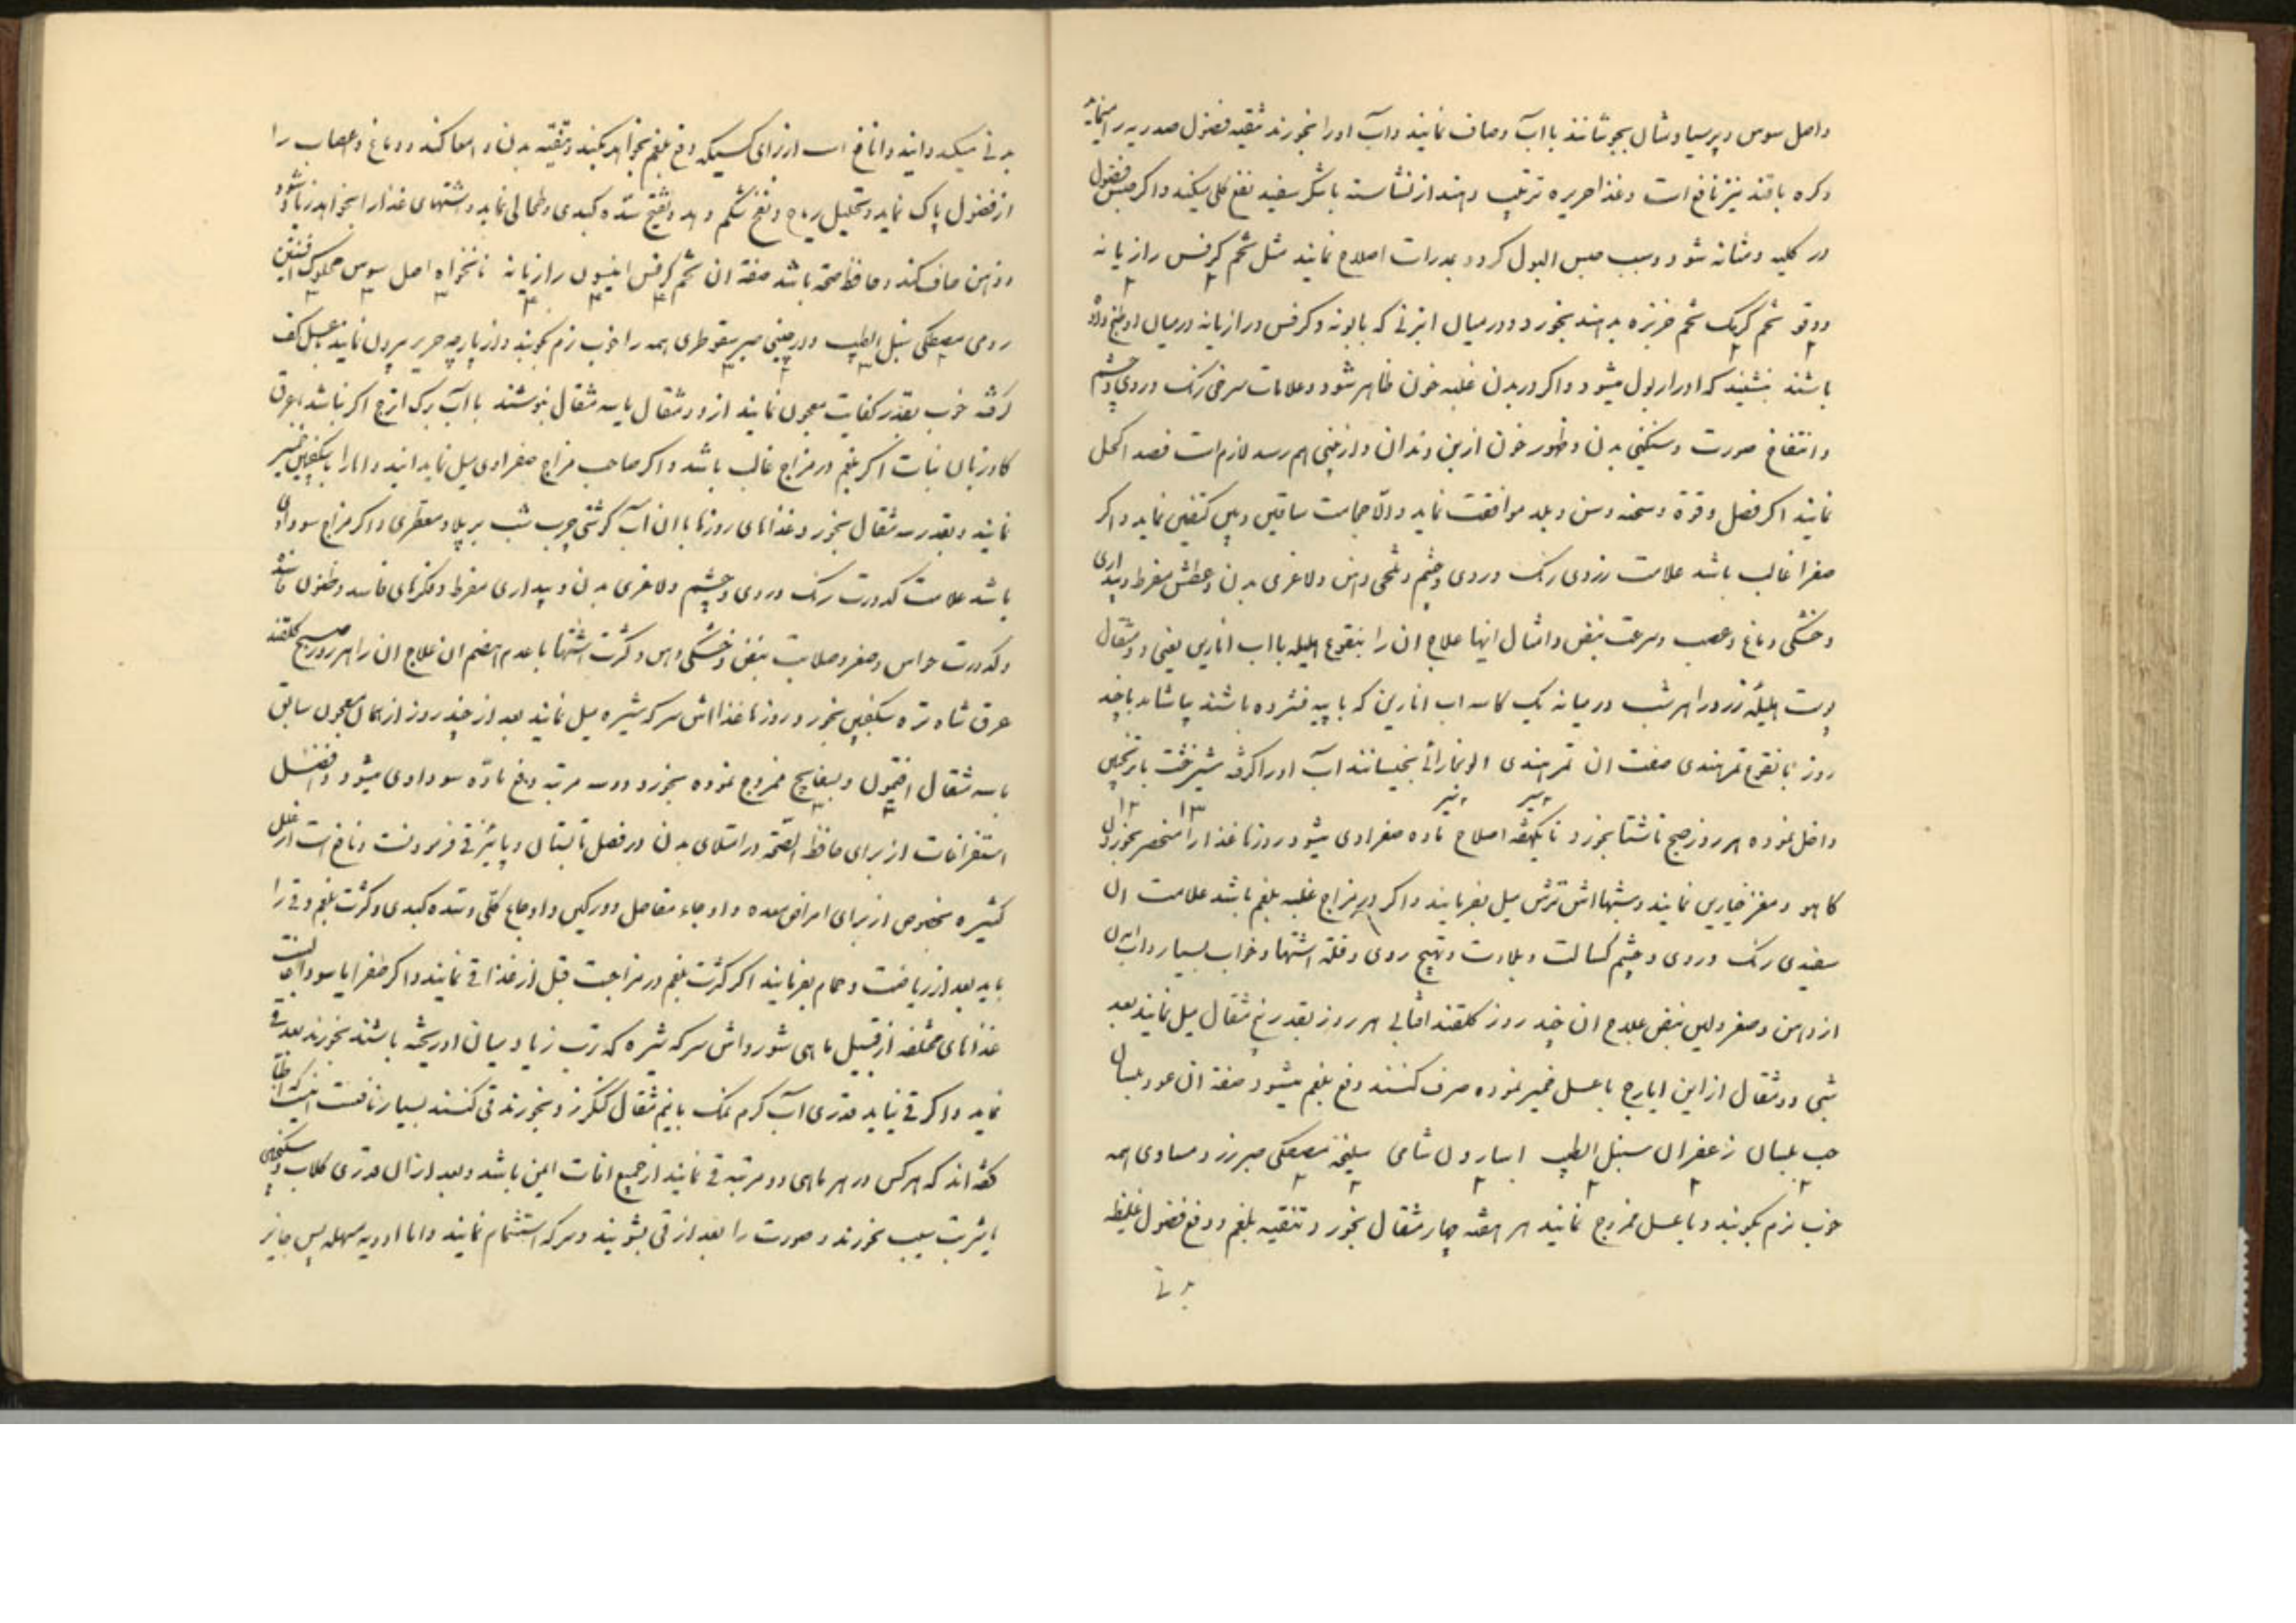 واصل سوس و پرسیاوشان بجوشانند با آب و صاف نمایند و آب او را بخورند تنقیه فضول صدریه را مینماید
و کره با قند نیز نافع است و غذا حریره ترتیب دهند از نشاسته با شکر سفید نفع کلی میکند و اکر حبس فضول
در کلیه و مثانه شود و سبب حبس البول کردد بمدرات اصلاح نمایند مثل تخم کرفس رازیانه
دوقو تخم خربزه بدهند بخورد و در میان ابزنی که بابونه و کرفس و رازیانه در میان او طبخ داده
باشند بنشیند که ادرار بول میشود و اکر در بدن غلبه خون ظاهر شود و علامات سرخی رنک و روی و چشم
و انتفاخ صورت و سنکینی بدن و ظهور خون از بن دندان و از بینی بهم رسد لازم است فصد اکحل
نمایند اکر فصل و قوة و سحنه و سن و بلد موافقت نماید و الا حجامت ساقین و بین کتفین نماید و اکر
صفرا غالب باشد علامت زردی رنک و روی و چشم و تلخی دهن و لاغری بدن و عطش مفرط و بیداری
و خشکی دماغ و عصب و سرعت نبض و امثال اینها علاج ان را بنقوع هلیله با آب انارین یعنی دو مثقال
پوست هلیله زرد را هر شب در میانه یک کاسه اب انارین که با پیه فشرده باشند بیاشامد تا چند
روز یا نقوع تمرهندی صفت ان تمرهندی الوبخارائی بخیسانند آب او را کرفته شیرخشت یا ترنجبین
داخل نموده هر روز صبح ناشتا بخورد تا یکهفته اصلاح ماده صفراوی میشود روزها غذا را منحصر بخوردن
کاهو و مغز خیارین نمایند و شبها اش ترش میل بفرمایند و اکر در مزاج غلبه بلغم باشد علامت ان
سفیدی رنک و روی و چشم کسالت و بلادت و تهبج روی و قلة اشتها و خواب بسیار و آب
از دهن و صغر و لین نبض علاج ان چند روز کلقند افتابی هر روز بقدر پنج مثقال میل نمایند بعد
شبی دو مثقال از این ایارج با عسل خمیر نموده صرف کنند دفع بلغم میشود صفة ان عود بلسان
حب بلسان زعفران سنبل الطیب اسارون شامی سلیخه مصطکی صبر زرد مساوی همه
خوب نرم بکوبند و با عسل ممزوج نمایند هر هفته چهار مثقال بخورد و تنقیه بلغم و دفع فضول غلیظه
بدنی
بدنی میکند و نافع است از برای کسیکه دفع بلغم بخواهد بکند و تنقیه بدن و امعا کند و دماغ و اعصاب را
از فضول پاک نماید و تحلیل ریاح و نفخ شکم دهد و تفتیح سده کبدی و طحالی نماید و اشتهای غذا را بخواهد زیاد شود
و ذهن صاف کند و حافظ صحة باشد صفة ان تخم کرفس انیسون رازیانه نانخواه اصل سوس محکوک افسنتین
رومی مصطکی سنبل الطیب دارچینی صبر سقوطری همه را خوب نرم بکوبند و از پارچه حریر بیرون نمایند بعسل کف
کرفته خوب بقدر کفایت معجون نمایند از دو مثقال یا سه مثقال بنوشند با آب برک اترج اکر نباشد بعرق
کاوزبان نبات اکر بلغم در مزاج غالب باشد و اکر صاحب مزاج صفراوی میل نماید با سکنجبین خمیر
نمایند و بقدر سه مثقال بخورد و غذاهای روزها با نان آب کوشتی چرب شب بر پلاو و اکر مزاج سوداوی
باشد علامت کدورت رنک و روی و چشم و لاغری بدن و بیداری مفرط و فکرهای فاسد و ظنون
و کدورت حواس و صغر و صلابت نبض و خشکی دهن و کثرت اشتها با عدم انهضام ان علاج ان را هر روز صبح کلقند
عرق شاه تره سکنجبین بخورد و روزها غذا اش سرکه شیره میل نمایند بعد از چند روز از همان معجون سابق
با سه مثقال افتیمون و بسفایج ممزوج نموده بخورد و دو سه مرتبه دفع ماده سوداوی میشود و افضل
استفراغات از برای حافظ الصحة در امتلای بدن در فصل تابستان و پائیز قی فرمودنست و نافع است از علل
کثیره مخصوص از برای امراض معده و اوجاع مفاصل و ورکین و اوجاع کلی و سده کبدی و کثرت بلغم و قی را
باید بعد از ریاضت و حمام بفرمایند اکر کثرت بلغم در مزاجت قبل از غذا قی نمایند و اکر صفرا یا سودا
غذاهای مختلفه از قبیل ماهی شور و اش سرکه شیره که ترب زیاد میان او ریخته باشند بخورند بعد قی
نماید و اکر قی نیاید قدری آب کرم نمک با نیم مثقال کنکرزد بخورند قی کنند بسیار نافعست
کفته اند که هر کس در هر ماهی دو مرتبه قی نمایند از جمیع افات ایمن باشد و بعد از ان قدری کلاب و سکنجبین
یا شربت سیب بخورند و صورت را بعد از قی بشویند و سرکه استشمام نمایند و اما ادویه مسهله پس جایز